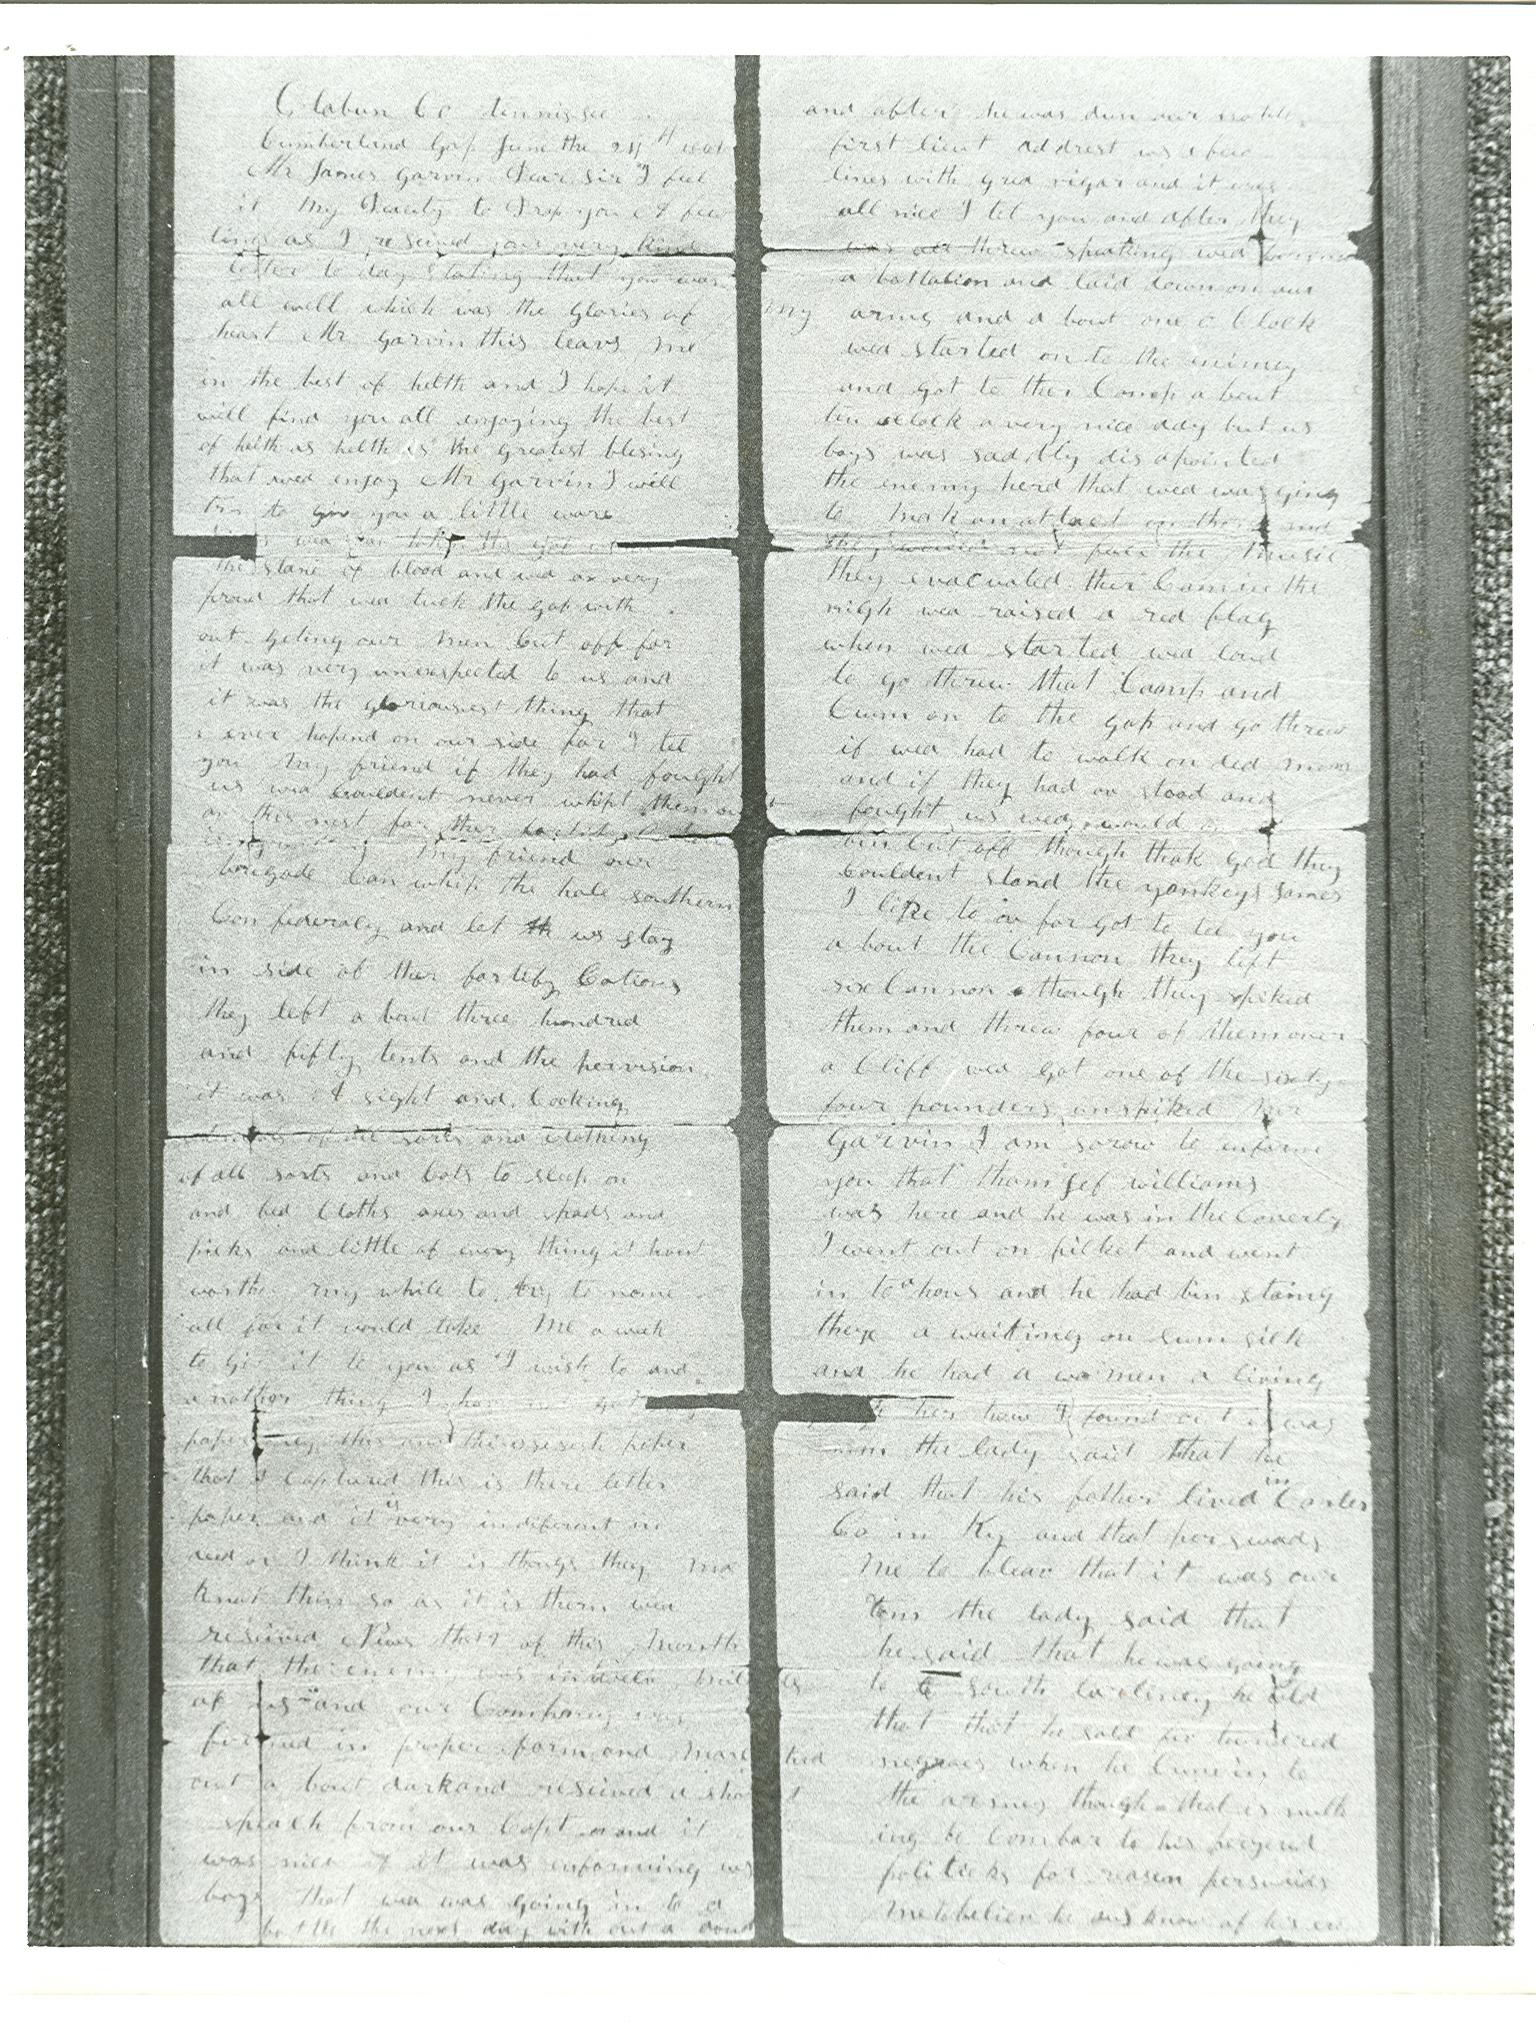 Clabun Co tennissee
Cumberland Gap June the 24th
Mr James Garvin Dear Sir I feel
it My Deauty to Drop you A few
lines as I reseived your very kind
letter to day Stating that you was
all well which was the glories of
heart Mr Garvin this leavs me
in the best of helth and I hope it
will find you all enjoying the best
of helth as helth is the greatest blesing
that wed enjoy Mr Garvin I will
try to giv you a little ware
the stane of blood and wed ar very
proud that wed tuck the gap with
out geting our men Cut off for
it was very unexspected to us and
it was the gloriousest thing that
ever hapend on our side for I tel
you My friend if they had fought
us wed Couldent never whipt them
in this nest for ther
My friend our
brigade Can whip the hole southern
Confederacy and let us stay
in side of ther fortify Cations
they left a bout three hundred
and fifty tents and the pervision
it was A sight and Cooking
of all sorts and Clothing
of all sorts and Cots to sleep on
and bed Cloths axes and spads and
picks and little of every thing it haint
worth my while to try to name
all for it would take Me a week
to giv it to you as I wish to and
a nother thing I
paper this and this is sesesh paper
that I Captured this is there letter
paper and it is very indiferent in
deed or I think it is though they ma
Knot think so as it is them wed
reseived News that of this Month
that the enemy was in twelv miles
of us and our Company was
formed in proper form and Marched
out a bout dark and reseived a short
speach from our Capt and it
was nice it was enforming us
boys that wed was going in to a
battle the next day with out a
and after he was dun our
first lieut addrest us a few
lines with grea vigar and it was
all nice I tel you and after they
was all threw speaking wed formed
a battalion and laid down on our
arms and a bout one o Clock
wed started on to the enimey
and got to ther Camp a bout
ten oclock a very nice day but us
boys was saddly disapointed
the enemy herd that wed was going
to mak an attact on them and
they would not face the Music
they evacuated ther Cam in the
nigh wed raised a red flag
when wed started wed
to go threw that Camp and
Cum on to the gap and go threw
if wed had to walk on ded mens
and if they had ov stood and
fought us wed would
bin Cut off though thank god they
Couldent stand the yankeys James
I like to ov for got to tel you
a bout the Cannon they left
six Cannon though they spiked
them and threw four of them over
a Cliff wed got one of the sixty
four pounders unspiked Mr
Garvin I am sorow to inform
you that thom Jef williams
was here and he was in the Caverly
I went out on picket and went
in to a hous and he had bin staing
there a waiting on sum sick
and he had a women a living
ther how I found out it was
him the lady said that he
said that his father lived in Carter
Co in Ky and that perswads
Me to bleav that it was our
tom the lady said that
he said that he was going
to South Carliney he told
that that he sold for
negroes when he Cum in to
the armey though that is nuth
ing to Compar to his
politicks for reason perswads
Me to believ he dus know of his